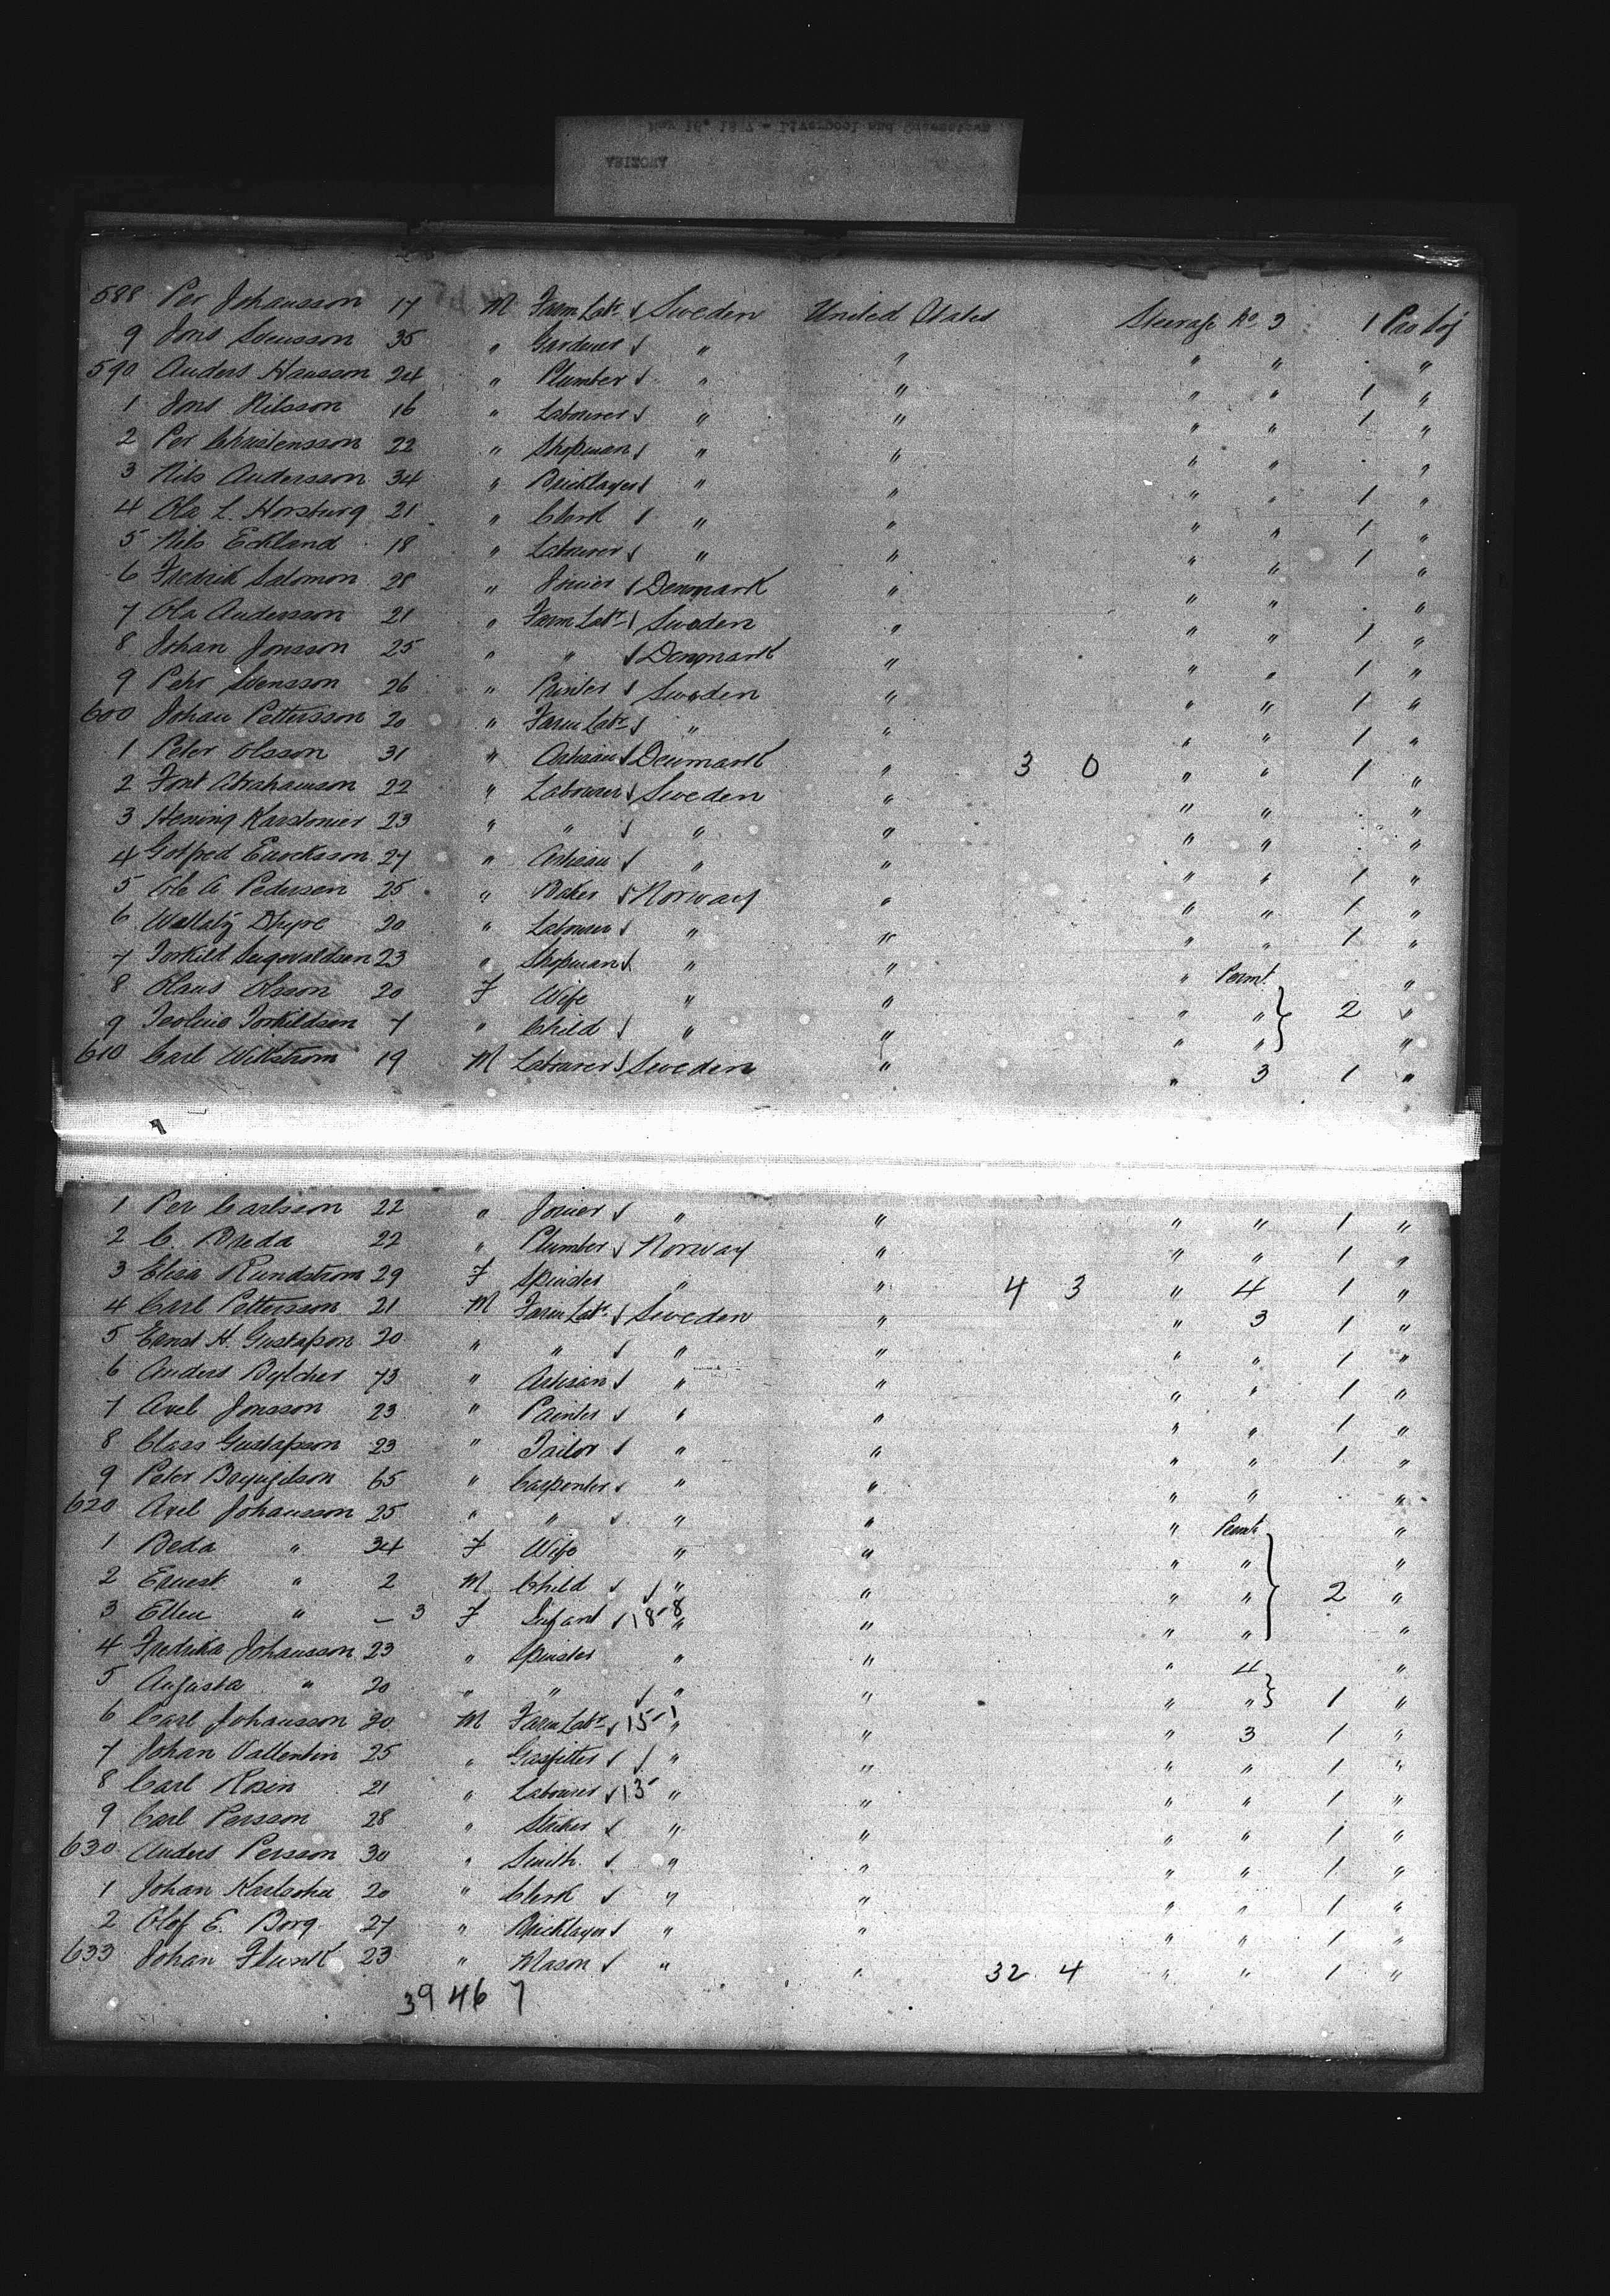 588 Per Johansson 17 M Farm Labr Sweden United States Steerage No 3 1 Pro Soj
9 Jons Svensson 35 " Gardener " " " " "
590 Anders Hansson 24 " Plumber " " " " 1 "
1 Jons Nilsson 16 " Labourer " " " " 1 "
2 Per Christensson 22 " Shopman " " " " "
3 Nils Andersson 34 " Bricklayer " " " " 1 "
4 Ola L. Horsburg 21 " Clerk " " " " 1 "
5 Nils Eckland 18 " Labourer " " " " 1 "
6 Fredrik Salomon 28 " Joiner Denmark " " " "
7 Ola Andersson 21 " Farm Labr Sweden " " " 1 "
8 Johan Jonsson 25 " " Denmark " " " 1 "
9 Pehr Svensson 26 " Printer Sweden " " " 1 "
600 Johan Pettersson 20 " Farm Labr " " " " 1 "
1 Peter Olsson 31 " Artisan Denmark " 3 0 " " 1 "
2 Abrahamson 22 " Labourer Sweden " " " "
3 Hening 23 " " " " " " "
4 27 " Artisan " " " " 1 "
5 Ole A. Pedersen 25 " Baker Norway " " " 1 "
6 20 " Labourer " " " " 1 "
7 Torkild 23 " Shopman " " " Permt "
8 Olaus Olsson 20 F Wife " " " " 2 "
9 Torkildsen 7 " Child " " " " "
610 Carl Wikstrom 19 M Labourer Sweden " " 3 1 "
1 Per Carlsson 22 " Joiner " " " " 1 "
2 C. Breda 22 " Plumber Norway " " " 1 "
3 Elisa Rundstrom 29 F Spinster " " 4 3 " 4 1 "
4 Carl Pettersson 21 M Farm Labr Sweden " " 3 1 "
5 Ernst H. Gustafson 20 " " " " " " 1 "
6 Anders 73 " Artisan " " " " 1 "
7 Axel Jonsson 23 " Painter " " " " 1 "
8 Claes Gustafson 23 " Tailor " " " " 1 "
9 Peter 65 " Carpenter " " " " "
620 Axel Johansson 25 " " " " " Permt "
1 Beda " 34 F Wife " " " " "
2 Ernest " 2 M Child " " " " 2 "
3 Ellen " – 3 F Infant 18-8 " " " " "
4 Fredrika Johansson 23 " Spinster " " " 4 "
5 Augusta " 20 " " " " " " 1 "
6 Carl Johansson 20 M Farm Labr 15-1 " " " 3 1 "
7 Johan Vallentin 25 " Gasfitter " " " " 1 "
8 Carl Rosin 21 " Labourer 13- " " " " 1 "
9 Carl Persson 28 " " " " " 1 "
630 Anders Persson 30 " Smith " " " " 1 "
1 Johan 20 " Clerk " " " " 1 "
2 Olof E. Borg 27 " Bricklayer " " " " 1 "
633 Johan 23 " Mason " " 32 4 " " 1 "
39 46 7